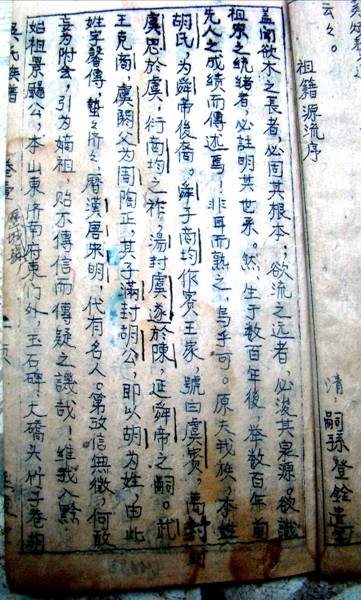 云々。
祖籍源流序
清 嗣孫登銓
盖闻欲木之長者，必固其根本；欲流之远者，必浚其泉源。欲識
祖宗之统绪者，必註明其世系。然，生于数百年後，举数百年前
先人之成绩而傳述焉！非耳而熟之，乌乎可。原夫我族，本姓
胡氏，为舜帝後裔。舜子商均作賓王家，號曰虞賓，禹封
虞思於虞，衍商均之祚，湯封虞遂於陳，延舜帝之嗣。武
王克商，虞閼父为周陶正，其子滿封胡公，即以胡为姓，由此
姓字馨傳，蟄々济々，歷漢唐宋明，代有名人。第攷信無徵，何敢
妄为附会，引为始祖，贻不傳信而傳疑之譏哉！維我入黔
始祖景聰公，本山東济南府東门外，玉石碑，大橋头竹子巷胡
氏族普